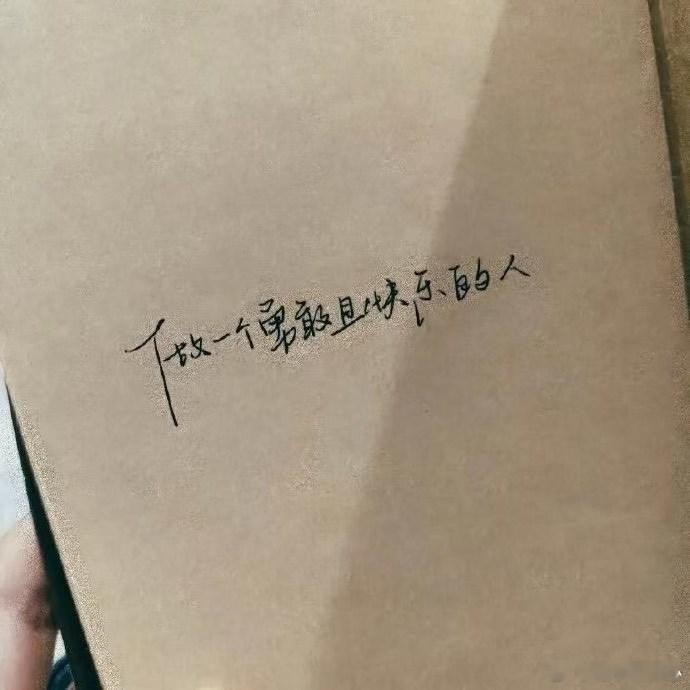 做一个勇敢且快乐的人